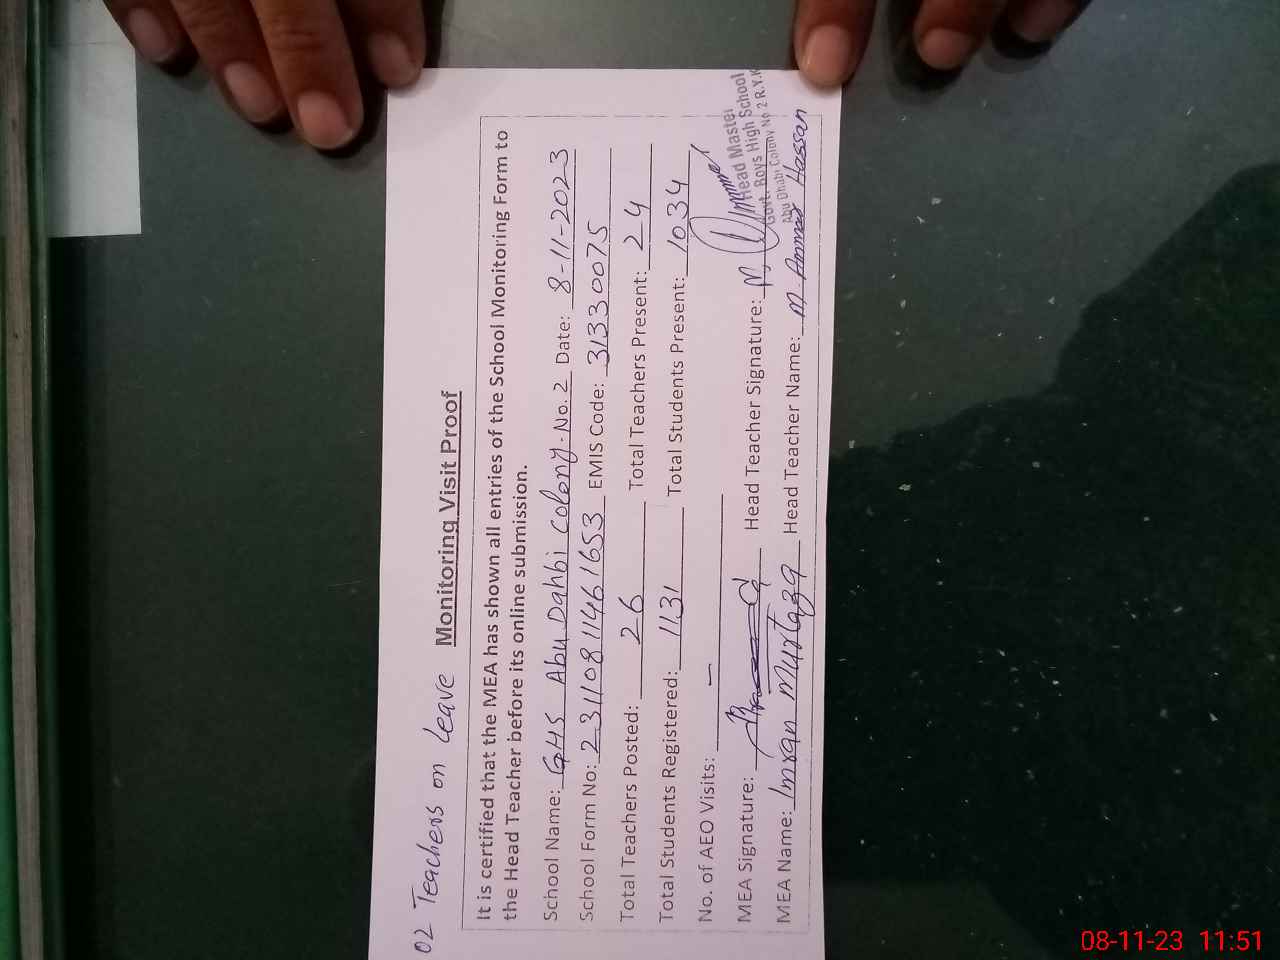 02 Teachers on Leave
Monitoring Visit Proof
It is certified that the MEA has shown all entries of the School Monitoring Form to
the Head Teacher before its online submission.
School Name: GHS Abu Dahbi Colony-No.2 Date: 8-11-2023
School Form No: 231108114461653 EMIS Code: 31330075
Total Teachers Posted: 26 Total Teachers Present: 24
Total Students Registered: 1131 Total Students Present: 1034
No. of AEO Visits: —
MEA Signature: Head Teacher Signature:
MEA Name: Imran Murtaza Head Teacher Name: M. Ammar Hassan
Head Master
Govt. Boys High School
Abu Dhabi Colony No 2 R.Y.K
08-11-23 11:51